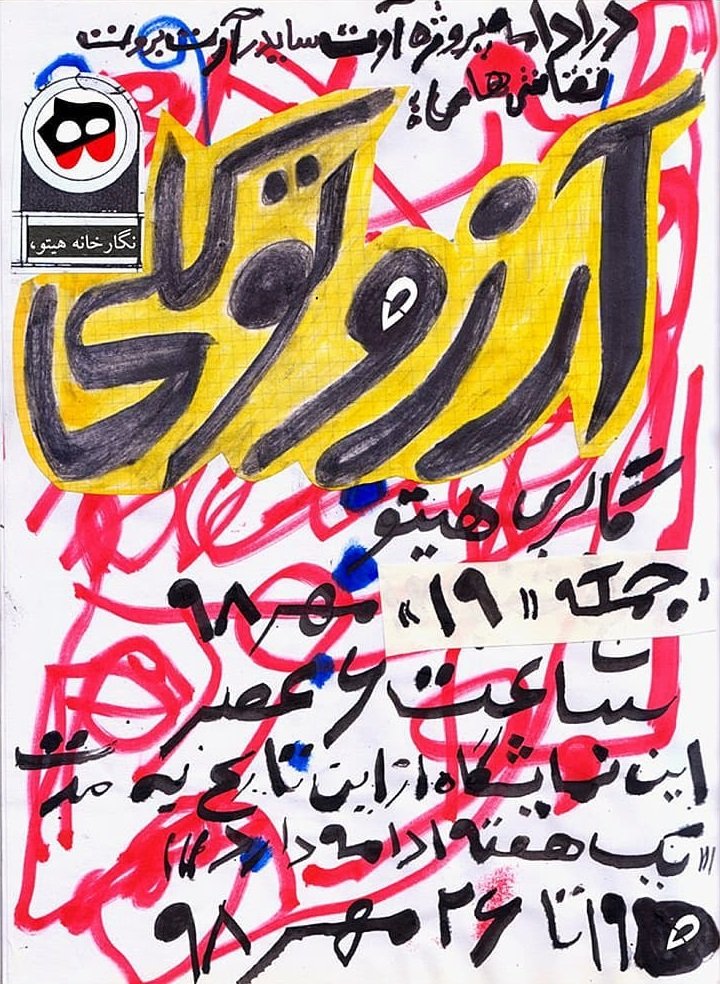 در ادامه پروژه آوت ساید آرت بروت
نقاشی‌های:
آرزو توکلی
نگارخانه هیتو،
گالری هیتو
جمعه «۱۹» مهر ۹۸
ساعت ۶ عصر
این نمایشگاه از این تاریخ به مدت
یک هفته ادامه دارد
۱۹ تا ۲۶ مهر ۹۸